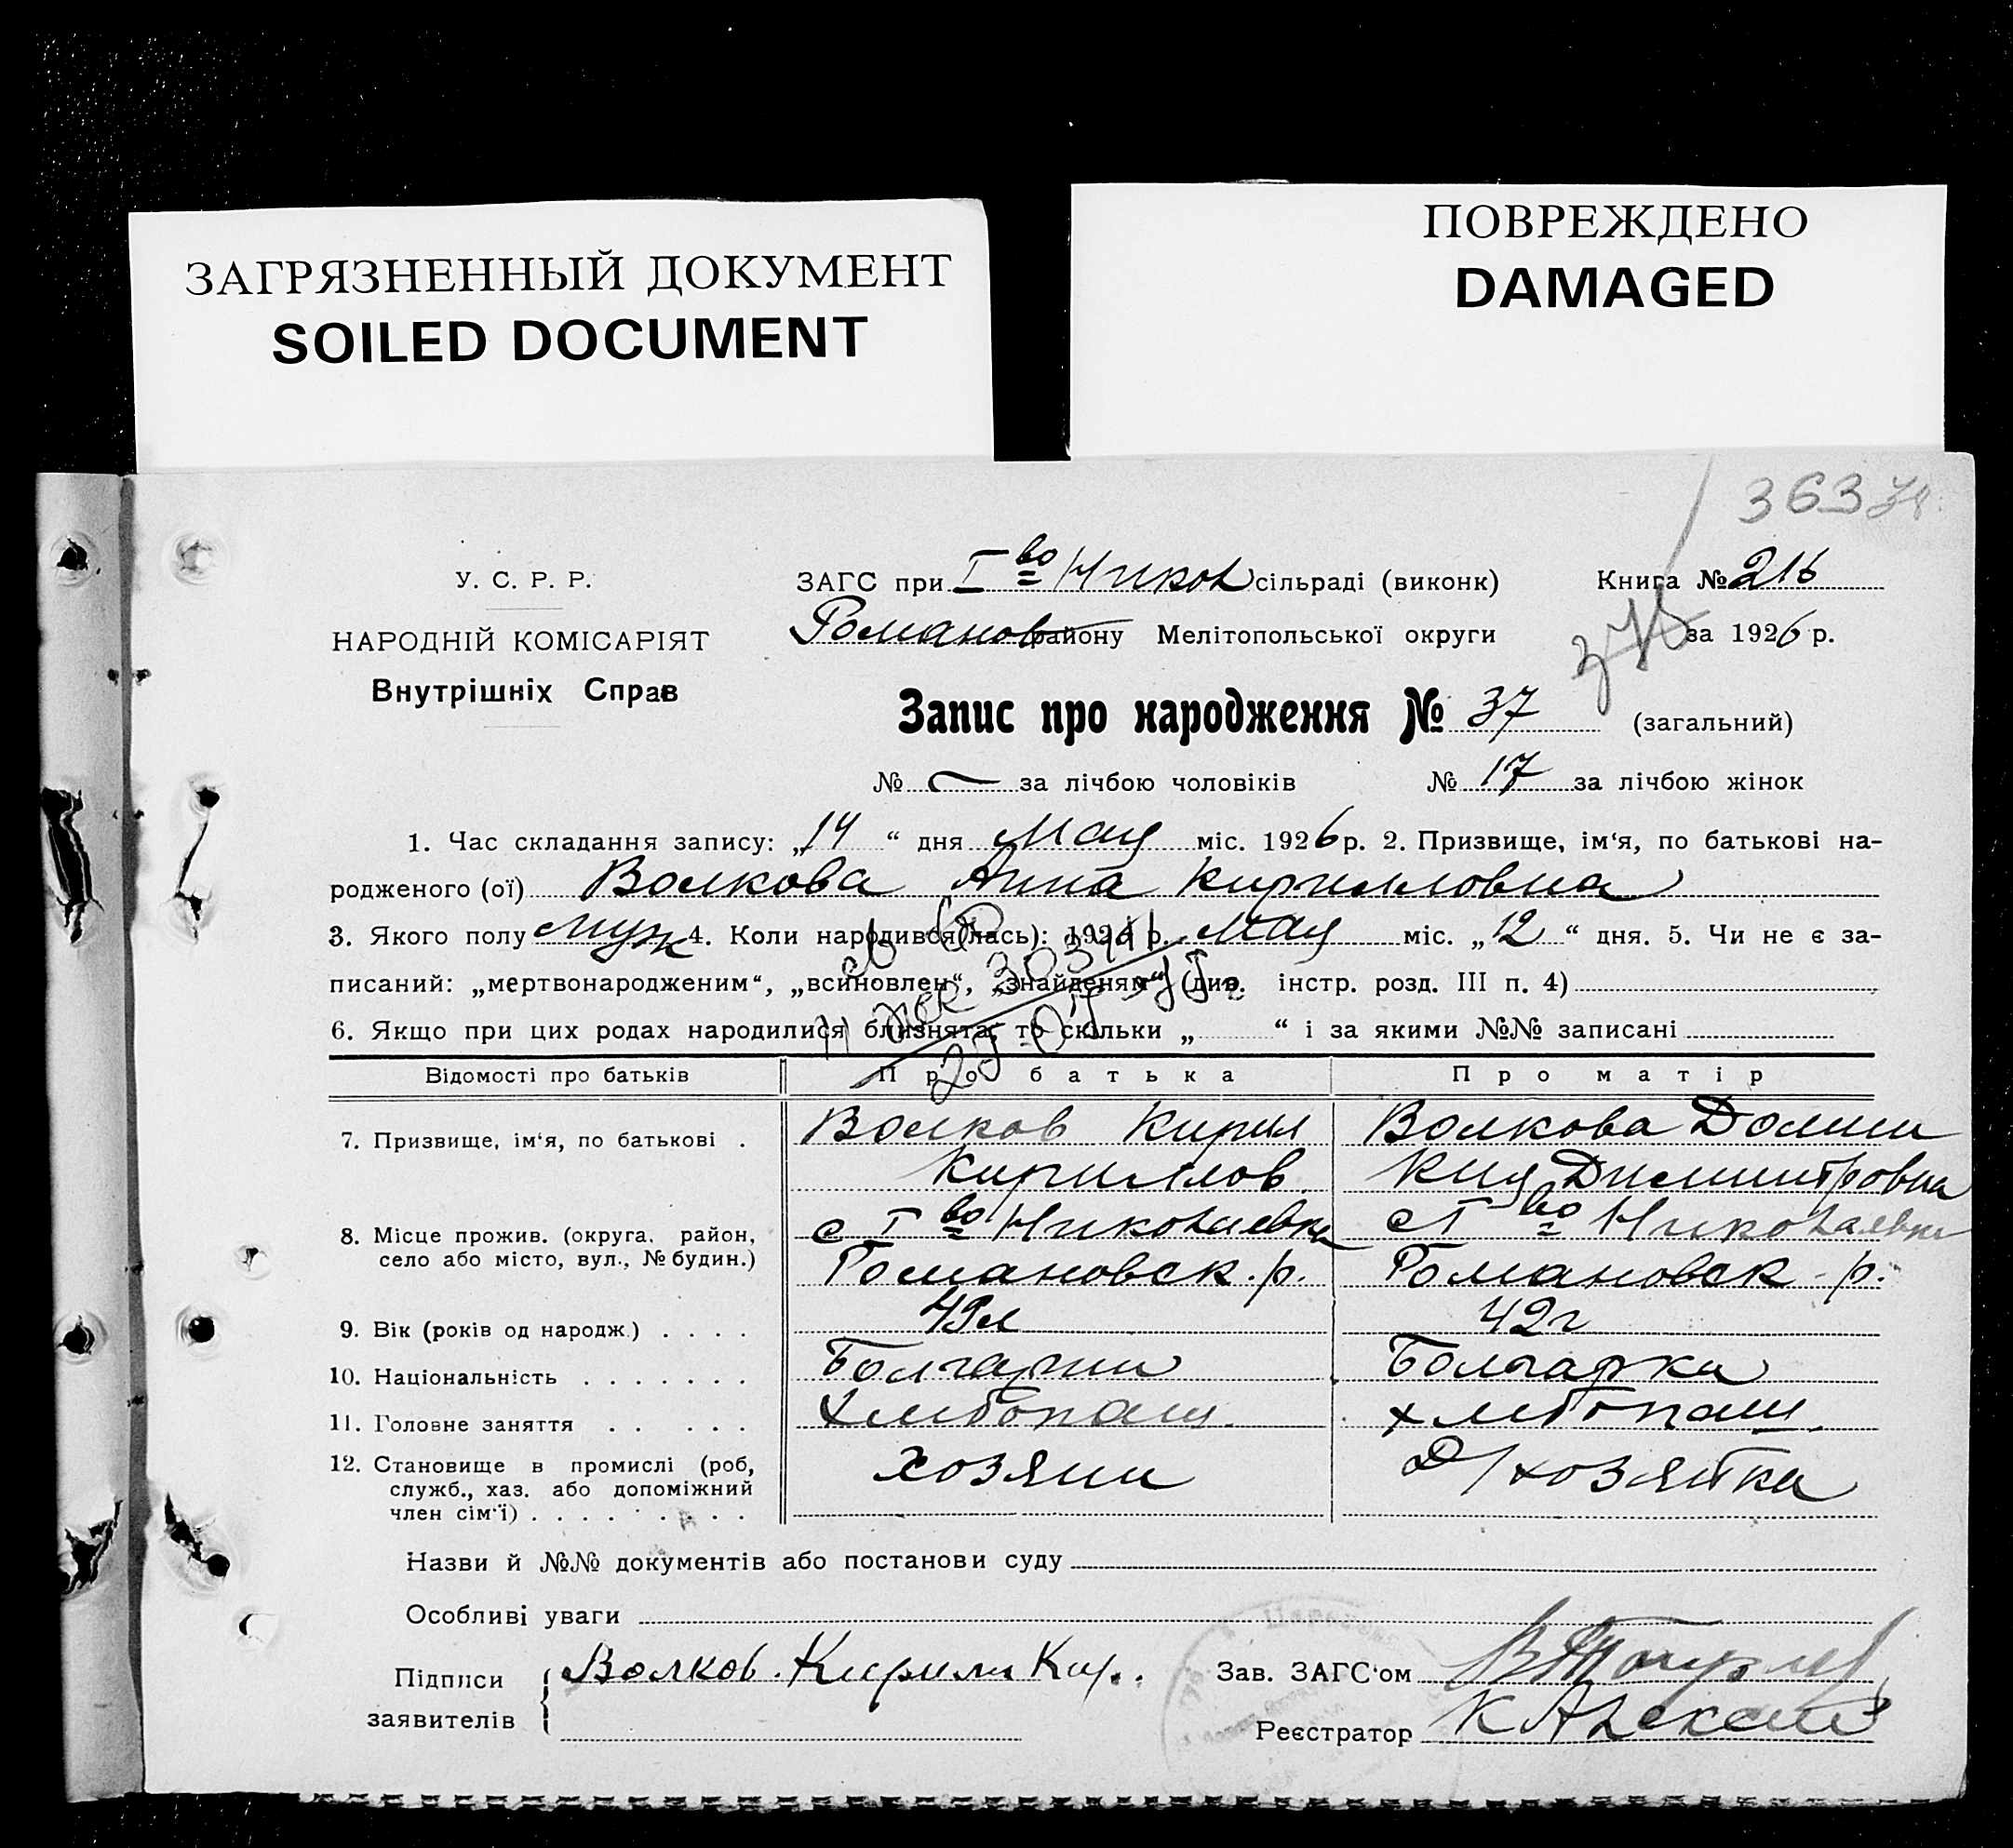 ЗАГРЯЗНЕННЫЙ ДОКУМЕНТ
SOILED DOCUMENT
ПОВРЕЖДЕНО
DAMAGED
363
У. С. Р. Р.
НАРОДНІЙ КОМІСАРІЯТ
Внутрішніх Справ
ЗАГС при I во Никол сільраді (виконк) Книга № 216
Романов району Мелітопольської округи за 1926 р.
Запис про народження № 37 (загальний)
№ — за лічбою чоловіків № 17 за лічбою жінок
1. Час складання запису: „14“ дня Мая міс. 1926 р. 2. Призвище, ім'я, по батькові на-
родженого (ої) Волкова Анна Кирилловна
3. Якого полу муж 4. Коли народився(лась): 192 р. Мая міс. „12“ дня. 5. Чи не є за-
писаний: „мертвонародженим“, „всиновлен“, „знайденям“ (див. інстр. розд. III п. 4)
6. Якщо при цих родах народилися близнята, то скільки „ “ і за якими №№ записані
Відомості про батьків Про батька Про матір
7. Призвище, ім'я, по батькові . Волков Кирил Волкова Домни
Кириллов Кия Димитровна
8. Місце прожив. (округа, район, с I во Николаевка с I во Николаевки
село або місто, вул., № будин.) Романовск. р. Романовск - р.
9. Вік (років од народж.) . . . . 49л 42г
10. Національність . . . . . . . Болгарин Болгарка
11. Головне заняття . . . . . Хлебопаш. хлебопаш.
12. Становище в промислі (роб, хозяин Д/хозяйка
служб., хаз. або допоміжний
член сім'ї) . . . . . . . . .
Назви й №№ документів або постанови суду
Особливі уваги
Підписи Волков. Кирилл Кир. Зав. ЗАГС'ом
заявителів Реєстратор